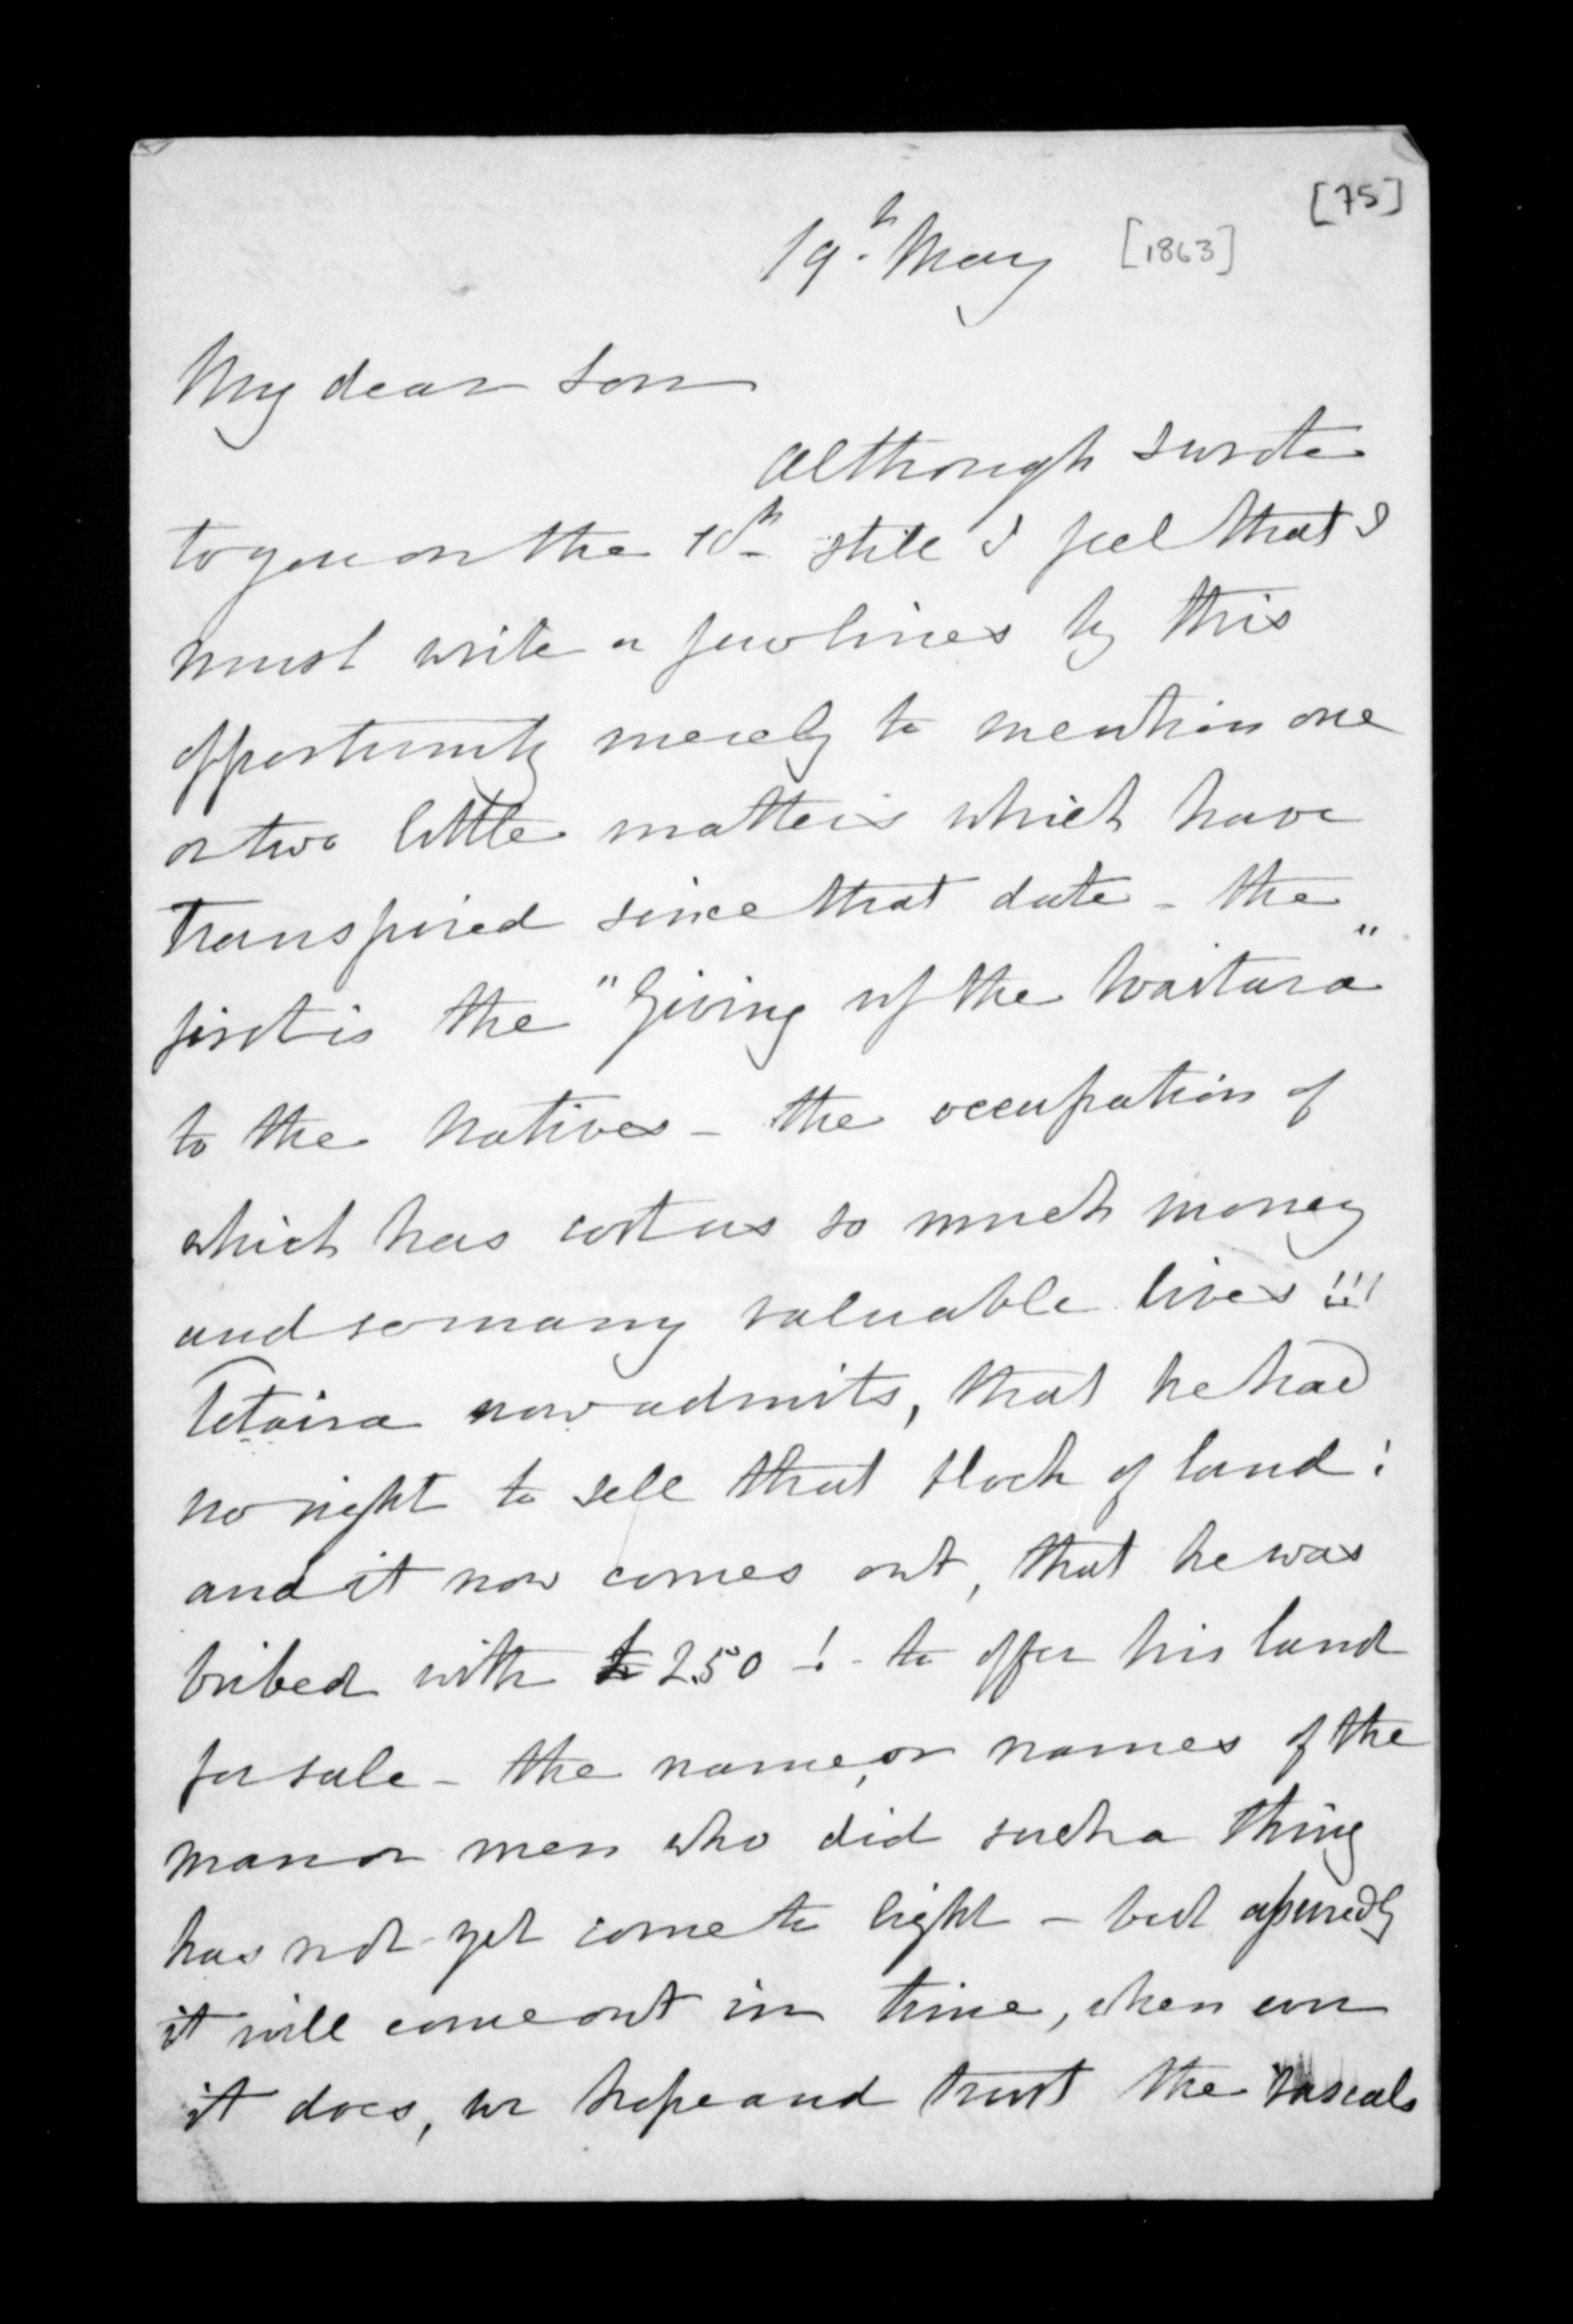 [75]
19th May [1863]
My dear Son
Although I wrote
to you on the 10th still I feel that I
must write a few lines by this
opportunity merely to mention one
or two little matters which have
transpired since that date - the
first is the "Giving up the Waitara"
to the Natives - the occupation of
which has cost us so much money
and so many valuable lives !!!
Tetaira now admits, that he had
no right to sell that block of land !
and it now comes out, that he was
bribed with £250 ! - to offer his land
for sale - the name, or names of the
man or men who did such a thing
has not yet come to light - but assuredly
it will come out in time, when ever
it does, we hope and trust the rascals